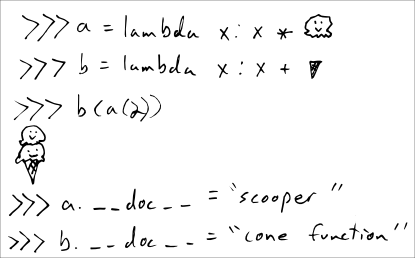 >>> a = lambda x: x *
>>> b = lambda x: x +
>>> b(a(2))
>>> a.__doc__ = "scooper"
>>> b.__doc__ = "cone function"